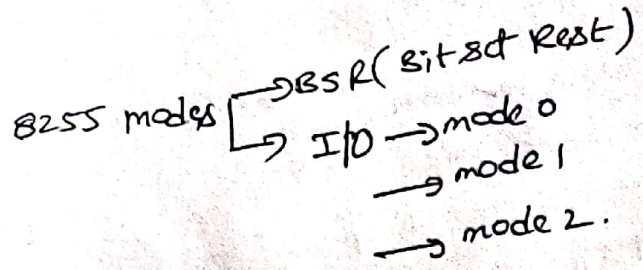 8255 modes → BSR (Bit set Rest)
→ I/O → mode 0
→ mode 1
→ mode 2.